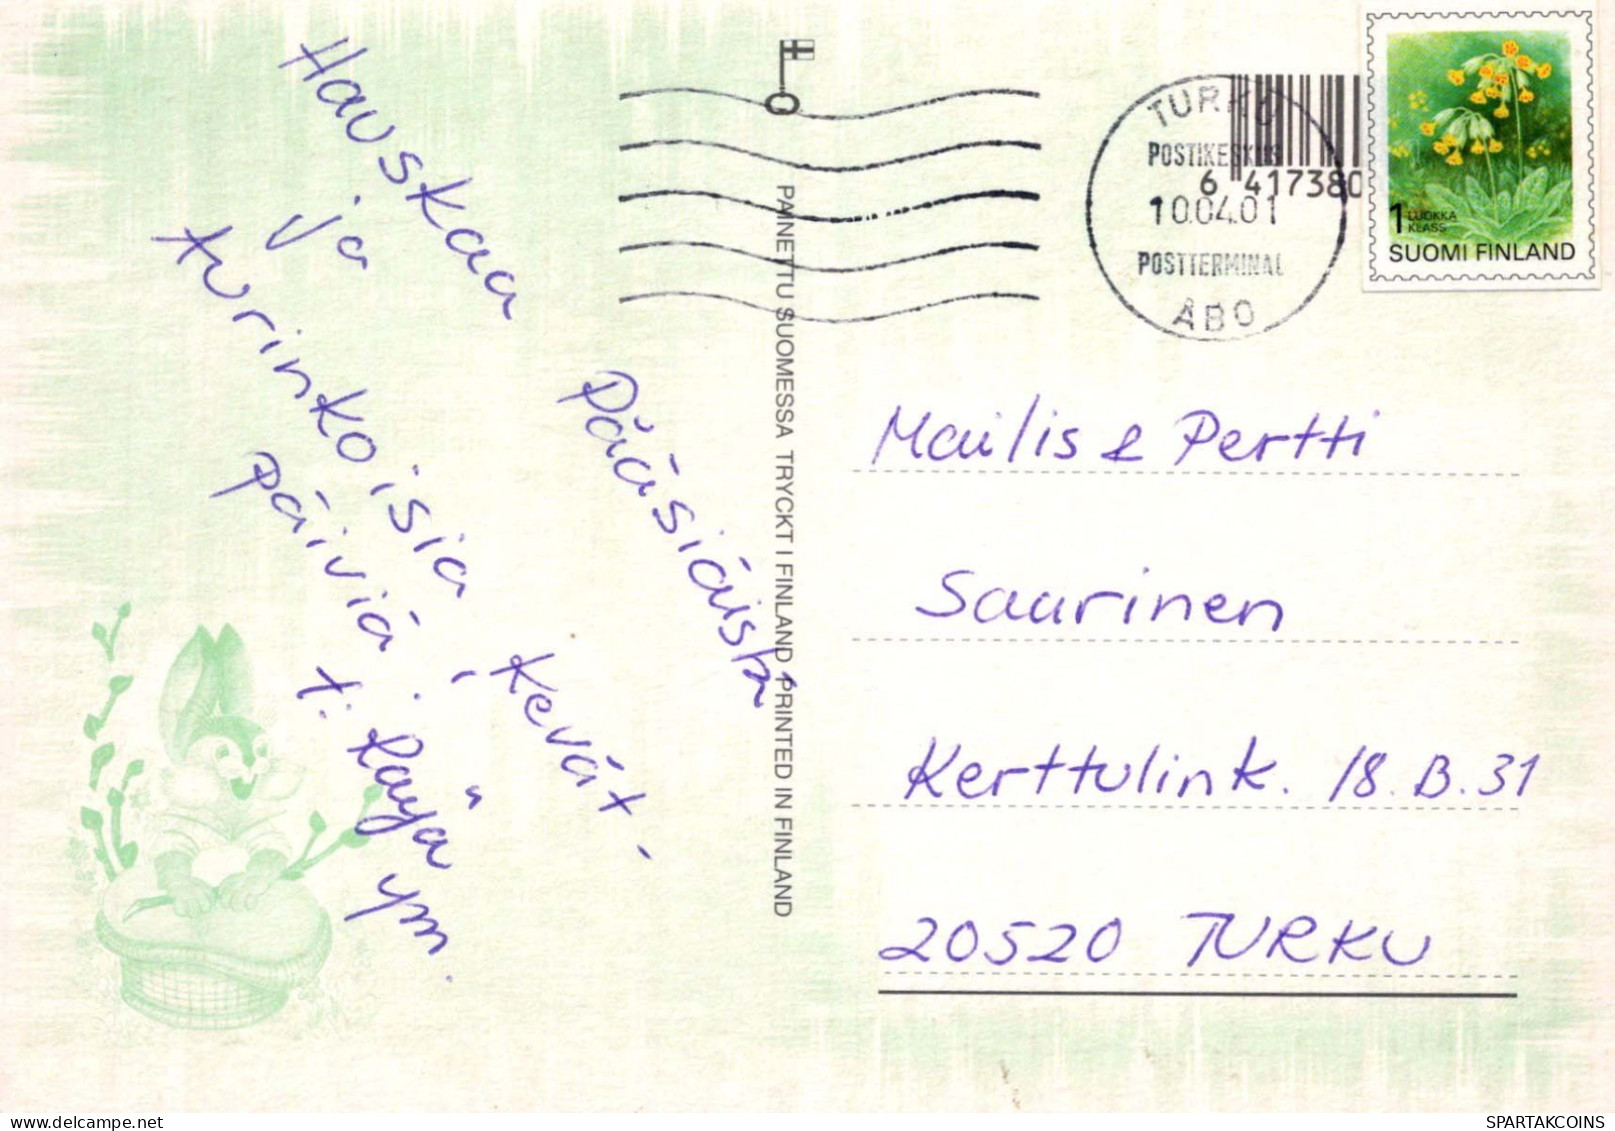 Hauskaa Pääsiäistä
ja
aurinkoisia, kevät-
päiviä.
t: Raija ym.
PAINETTU SUOMESSA TRYCKT I FINLAND PRINTED IN FINLAND
TURKU
POSTIKESKUS
6 417380
10.04.01
POSTTERMINAL
ÅBO
1 LUOKKA
KLASS
SUOMI FINLAND
Mailis & Pertti
Saarinen
Kerttulink. 18.B.31
20520 TURKU
SPARTAKCOINS